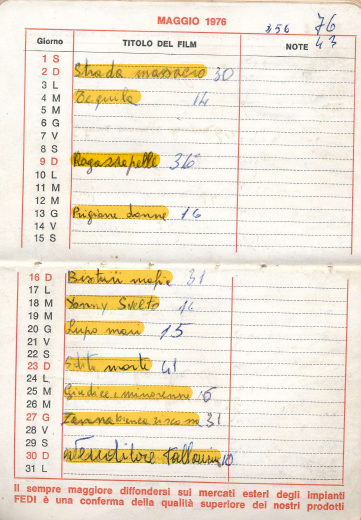 MAGGIO 1976
356 76
43
Giorno TITOLO DEL FILM NOTE
1 S
2 D Strada massacio 30
3 L
4 M Tequila 14
5 M
6 G
7 V
8 S
9 D Ragassapelle 36
10 L
11 M
12 M
13 G Prigione donne 16
14 V
15 S
16 D Bisturi mafie 31
17 L
18 M Jonny Svelto 16
19 M
20 G Lupo mari 15
21 V
22 S
23 D morte 41
24 L
25 M Giudice minorenne 15
26 M
27 G Zanna bianca 31
28 V
29 S
30 D Venditore Palloncini 10
31 L
Il sempre maggiore diffondersi sui mercati esteri degli impianti
FEDI è una conferma della qualità superiore dei nostri prodotti